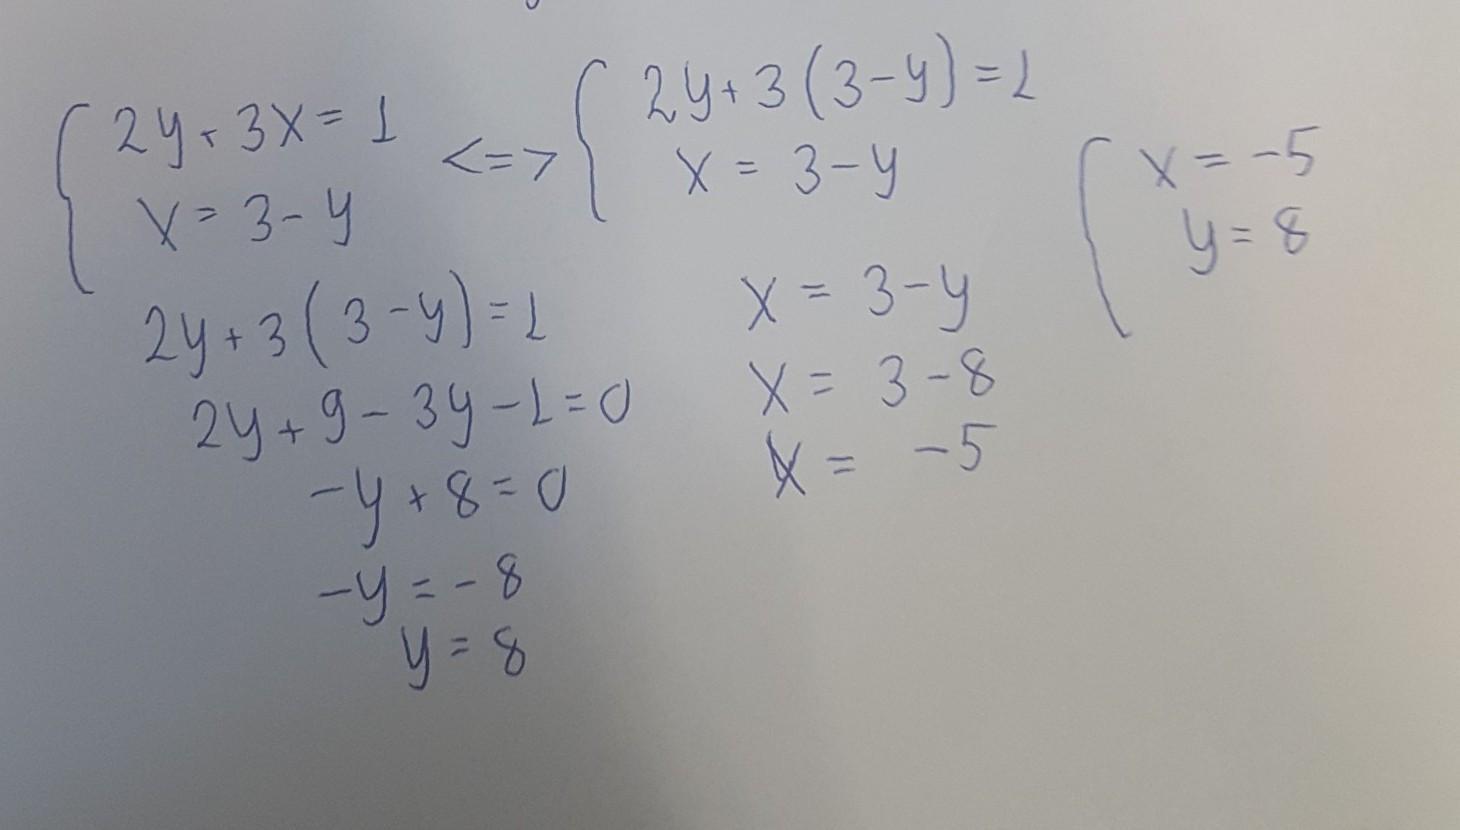 2y + 3x = 1
x = 3 - y
<=>
2y + 3(3 - y) = 1
x = 3 - y
2y + 3(3 - y) = 1
2y + 9 - 3y - 1 = 0
-y + 8 = 0
-y = -8
y = 8
x = 3 - y
x = 3 - 8
x = -5
x = -5
y = 8